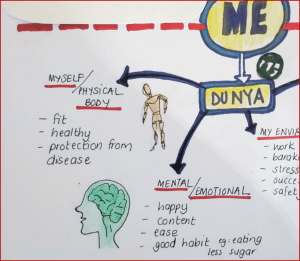 ME
115
DUNYA
MYSELF/
PHYSICAL
BODY
- fit
- healthy
- protection from
disease
MENTAL/
EMOTIONAL
- happy
- content
- ease
- good habit eg. eating
less sugar
MY ENVI
- work
- barak
- stress
- succe
- safet